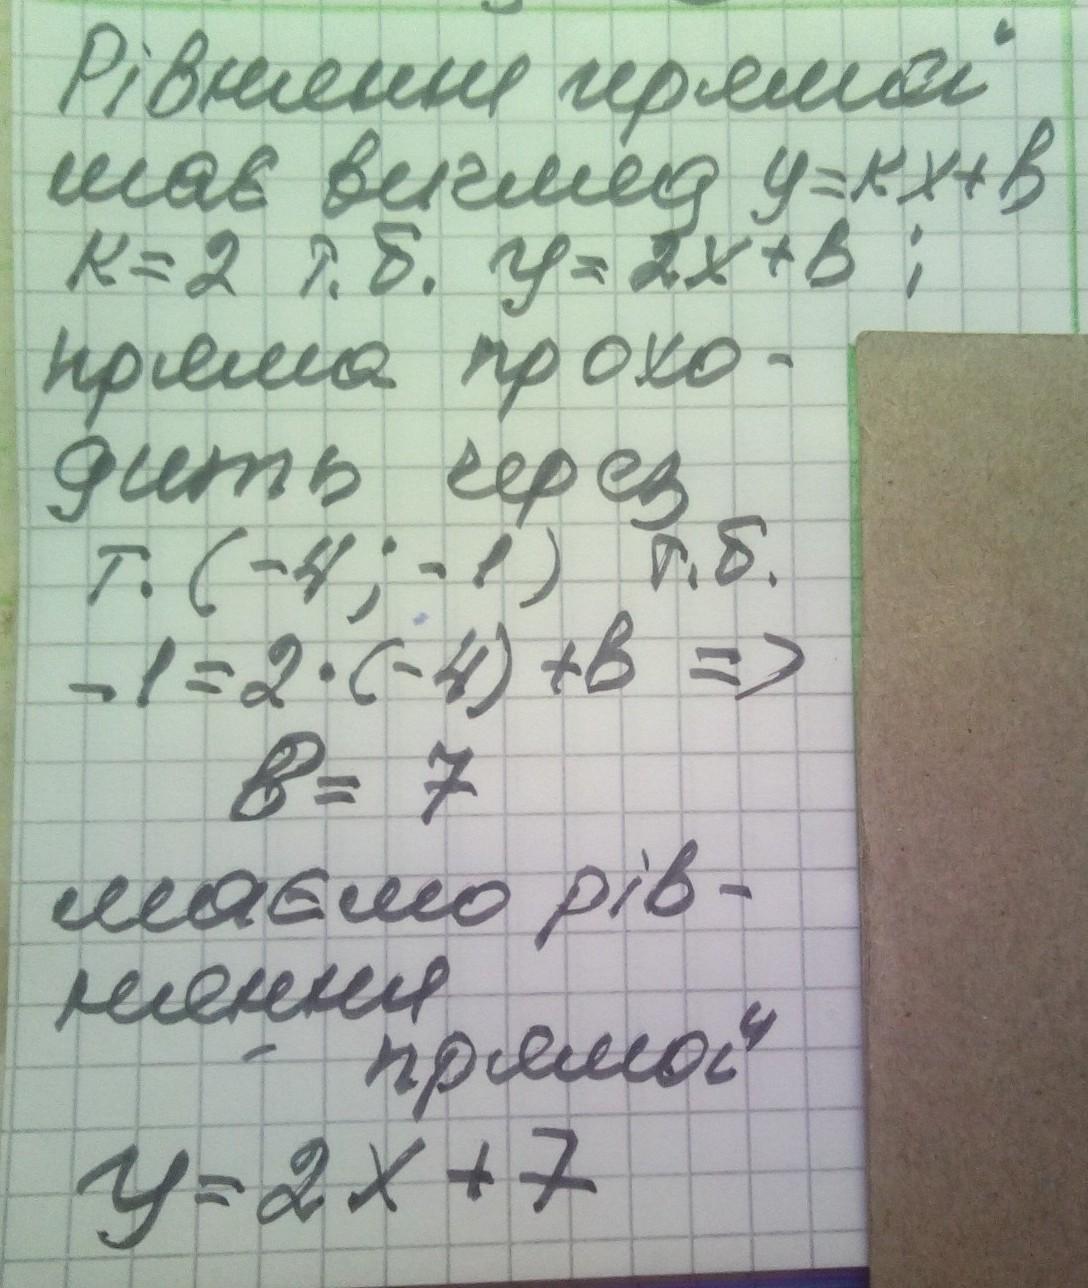 Рівняння прямої
має вигляд y=кx+в
к=2 т.б. y=2x+в ;
пряма прохо-
дить через
т. (-4; -1) т.б.
-1=2·(-4)+в =>
в= 7
маємо рів-
няння
- прямої
y=2x+7